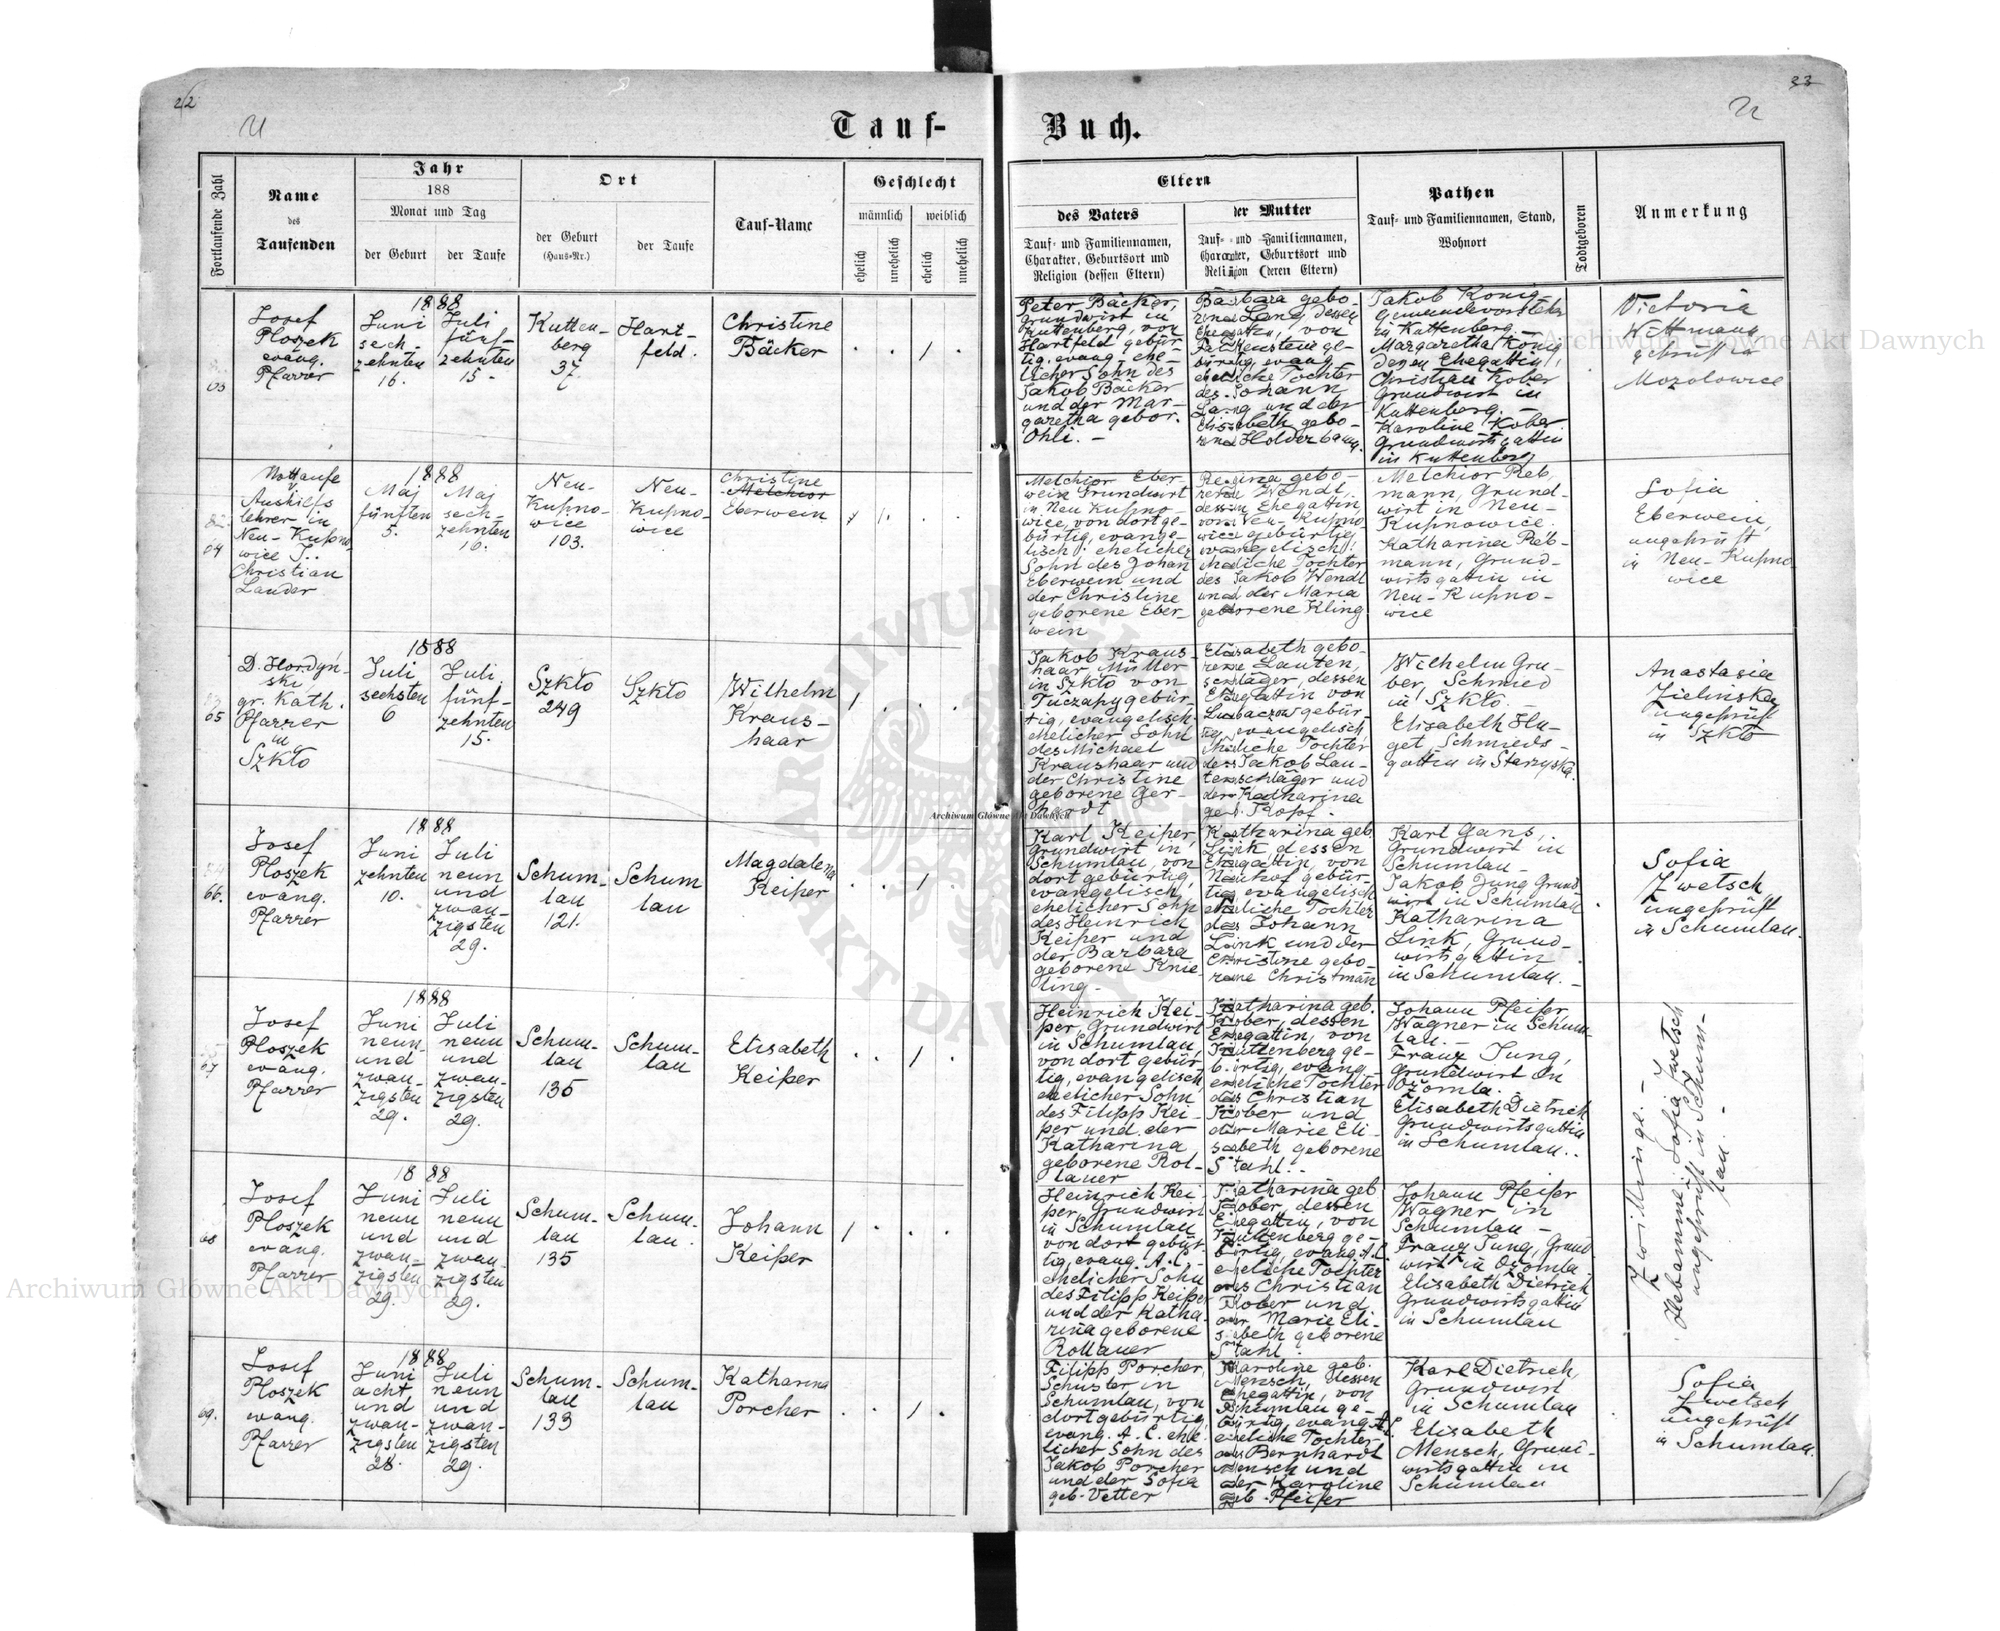 22
33
Tauf-
Buch.
Fortlaufende Zahl
Name
des
Taufenden
Jahr
188
Monat und Tag
der Geburt
der Taufe
Ort
der Geburt
(Haus-Nr.)
der Taufe
Tauf-Name
Geschlecht
männlich
weiblich
ehelich
unehelich
ehelich
unehelich
Eltern
des Vaters
Tauf- und Familiennamen,
Charakter, Geburtsort und
Religion (dessen Eltern)
der Mutter
Tauf- und Familiennamen,
Charakter, Geburtsort und
Religion (deren Eltern)
Pathen
Tauf- und Familiennamen, Stand,
Wohnort
Todtgeboren
Anmerkung
Josef
Ploszek
evang.
Pfarrer
1888
Juni
sech-
zehnten
16.
Juli
fünf-
zehnten
15.
Kutten-
berg
37.
Hart-
feld.
Christine
Bäcker
Peter Bäcker,
Grundwirt in
Kuttenberg, von
Hartfeld gebür-
tig, evang. ehe-
licher Sohn des
Jakob Bäcker
und der Mar-
garetha gebor.
Ohli. -
Barbara gebo-
rene Lang, dessen
Ehegattin, von
bürtig, evang.
eheliche Tochter
des Johann
Lang und der
Elisabeth gebo-
rene Holderbaum.
Jakob König
Gemeindevorsteher
in Kuttenberg. -
Margaretha König
dessen Ehegattin,
Christian Kober
Grundwirt in
Kuttenberg. -
Karoline Kober
Grundwirtsgattin
in Kuttenberg
Victoria
Wittmann
geprüft in
Mozolowice
64
Nottaufe
v.
Aushilfs
lehrer in
Neu-Kupno
wice J.
Christian
Lander
1888
Maj
fünften
5.
Maj
sech-
zehnten
16.
Neu-
Kupno-
wice
103.
Neu-
Kupno-
wice
Christine
Melchior
Eberwein
Melchior Eber-
wein Grundwirt
in Neu Kupno-
wice, von dort ge-
bürtig, evange-
lisch, ehelicher
Sohn des Johan
Eberwein und
der Christine
geborene Eber-
wein
Regina gebo-
rene Wendl,
dessen Ehegattin,
von Neu-Kupno-
wice gebürtig
evangelisch,
eheliche Tochter
des Jakob Wendl
und der Maria
geborene Kling
Melchior Reb
mann, Grund-
wirt in Neu-
Kupnowice.
Katharina Reb-
mann, Grund-
wirtsgattin in
Neu-Kupno-
wice
Sofia
Eberwein,
ungeprüft
in Neu-Kupno
wice
65
D. Hordyń-
ski
gr. Kath.
Pfarrer
in
Szkło
1888
Juli
sechsten
6
Juli
fünf-
zehnten
15.
Szkło
249
Szkło
Wilhelm
Kraus-
haar
Jakob Kraus-
haar, Müller
in Szkło von
Tuczapy gebür-
tig, evangelisch
ehelicher Sohn
des Michael
Kraushaar und
der Christine
geborene Ger-
hardt
Elisabeth gebo-
rene Lauten,
schläger, dessen
Ehegattin von
Lubaczow gebür-
tig, evangelisch
eheliche Tochter
des Jakob Lau-
tenschläger und
der Katharina
Wilhelm Gru-
ber, Schmied
in Szkło. -
Elisabeth Hu-
get, Schmieds-
gattin in Starzyska.
Anastasia
Zielinska
ungeprüft
in Szkło
66.
Josef
Ploszek
evang.
Pfarrer
1888
Juni
zehnten
10.
Juli
neun
und
zwan-
zigsten
29.
Schum-
lau
121.
Schum
lau
Magdalena
Keiper
Karl Keiper,
Grundwirt in
Schumlau, von
dort gebürtig,
evangelisch,
ehelicher Sohn
des Heinrich
Keiper und
der Barbara
geborene Knie-
ling. -
Katharina geb.
Link dessen
Ehegattin, von
Neuhof gebür-
tig, evangelisch
eheliche Tochter
des Johann
Link und der
Christine gebo-
rene Christmann
Karl Gans,
Grundwirt in
Schumlau -
Jakob Jung Grund-
wirt in Schumlau
Katharina
Link, Grund-
wirtsgattin
in Schumlau. -
Sofia
Zwetsch,
ungeprüft
in Schumlau.
67
Josef
Ploszek
evang.
Pfarrer
1888
Juni
neun-
und
zwan-
zigsten
29.
Juli
neun
und
zwan-
zigsten
29.
Schum-
lau
135
Schum-
lau
Elisabeth
Keiper
Heinrich Kei-
per, Grundwirt
in Schumlau,
von dort gebür-
tig, evangelisch,
ehelicher Sohn
des Filipp Kei-
per und der
Katharina
geborene Rol-
lauer
Katharina geb.
Kober, dessen
Ehegattin, von
Kuttenberg ge-
bürtig, evang.
eheliche Tochter
des Christian
Kober und
der Marie Eli-
sabeth geborene
Stahl. -
Johann Pfeifer,
Wagner in Schum-
lau. -
Franz Jung,
Grundwirt in
Ożomla.
Elisabeth Dietrich
Grundwirtsgattin
in Schumlau. -
Zwillinge. -
Hebamme: Sofia Zwetsch
ungeprüft in Schum-
lau. -
68
Josef
Ploszek
evang.
Pfarrer
1888
Juni
neun
und
zwan-
zigsten
29.
Juli
neun
und
zwan-
zigsten
29.
Schum-
lau
135
Schum-
lau.
Johann
Keiper
Heinrich Kei
per, Grundwirt
in Schumlau
von dort gebür-
tig, evang. A. C.
ehelicher Sohn
des Filipp Keiper
und der Katha-
rina geborene
Rollauer
Katharina geb
Kober, dessen
Ehegattin, von
Kuttenberg ge-
bürtig, evang. A. C.
eheliche Tochter
des Christian
Kober und
der Marie Eli-
sabeth geborene
Stahl.
Johann Pfeifer
Wagner in
Schumlau -
Franz Jung, Grund
wirt in Ożomla
Elisabeth Dietrich
Grundwirtsgattin
in Schumlau
69.
Josef
Ploszek
evang.
Pfarrer
1888
Juni
acht
und
zwan-
zigsten
28.
Juli
neun
und
zwan-
zigsten
29.
Schum-
lau
133
Schum-
lau
Katharina
Porcher
Filipp Porcher,
Schuster in
Schumlau, von
dort gebürtig,
evang. A. C. ehe-
licher Sohn des
Jakob Porcher
und der Sofia
geb. Vetter
Karoline geb.
Mensch, dessen
Ehegattin, von
Schumlau ge-
bürtig, evang. A. C.
eheliche Tochter
des Bernhardt
Mensch und
der Karoline
geb. Pfeifer
Karl Dietrich,
Grundwirt
in Schumlau
Elisabeth
Mensch, Grund-
wirtsgattin in
Schumlau
Sofia
Zwetsch
ungeprüft
in Schumlau.
Archiwum Główne Akt Dawnych
Archiwum Główne Akt Dawnych
Archiwum Główne Akt Dawnych